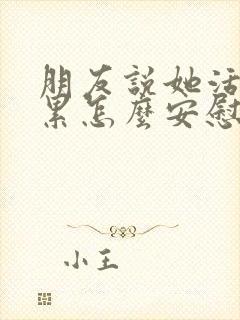 朋友説她活
累怎麼安慰
小王